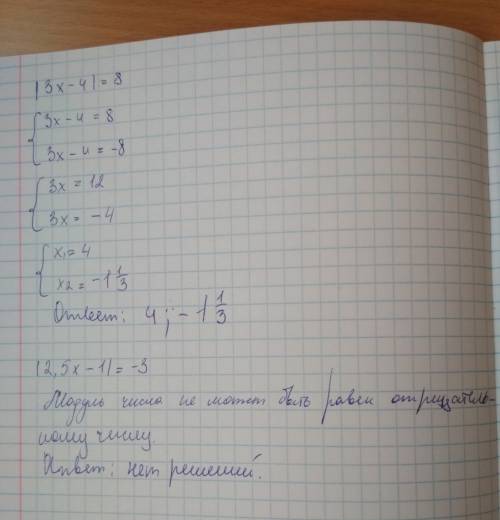 |3x-4|=8
{3x-4=8
3x-4=-8
{3x=12
3x=-4
{x₁=4
x₂=-1 1/3
Ответ: 4; -1 1/3
|2,5x-1|=-3
Модуль числа не может быть равен отрицатель-
ному числу.
Ответ: нет решений.